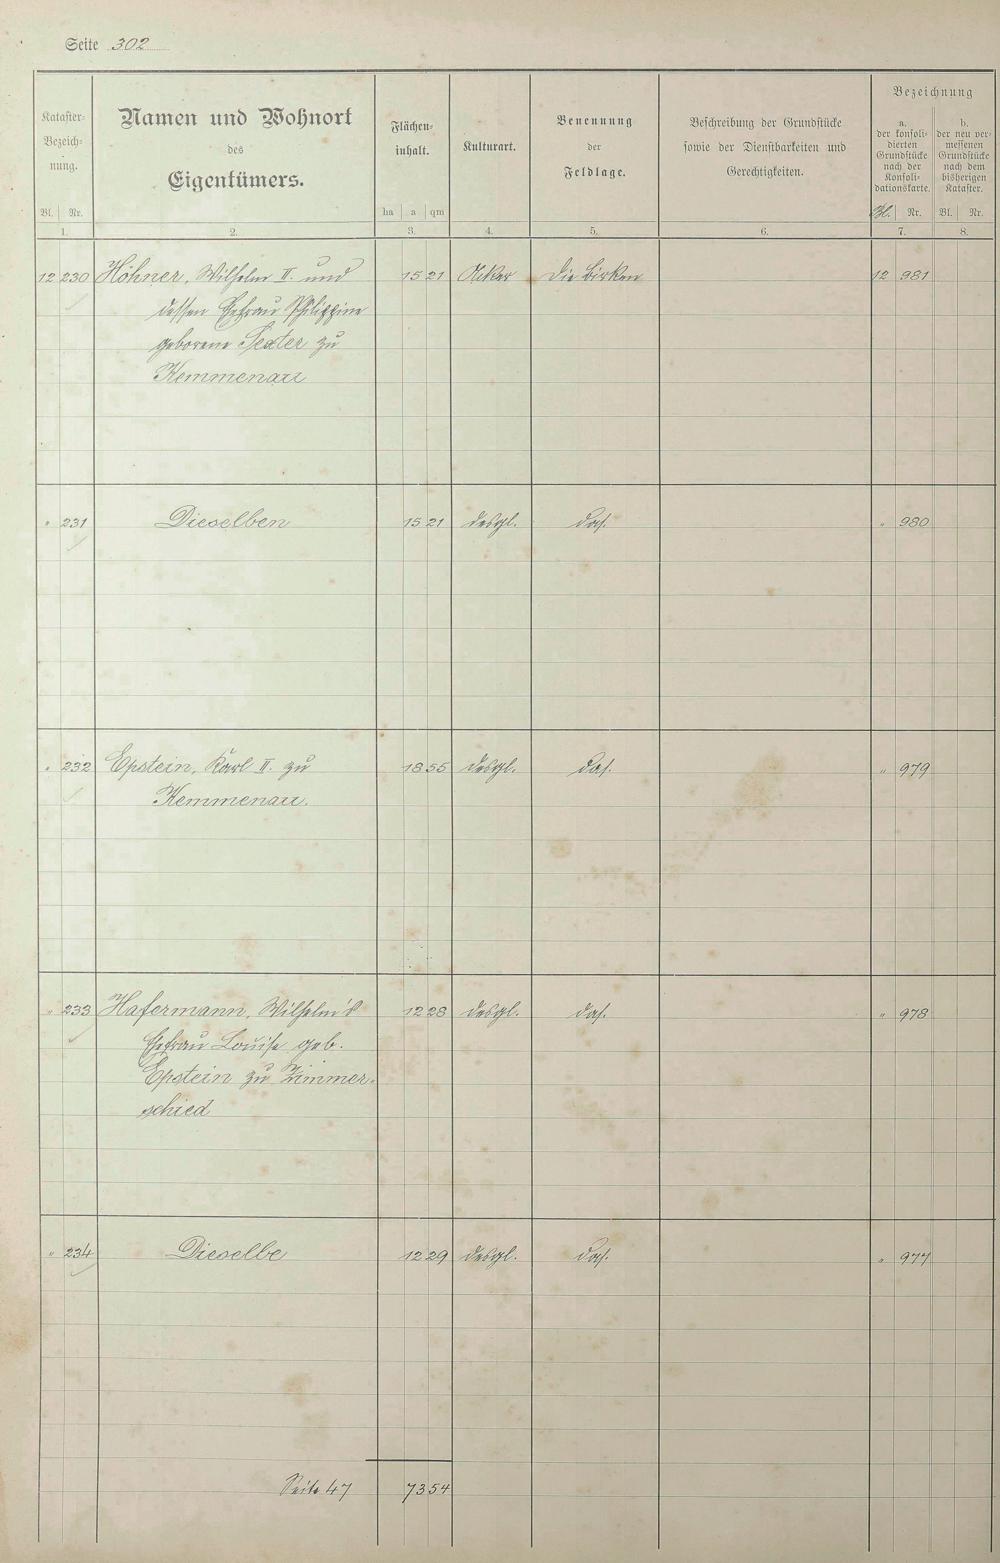 Seite 302
Kataster-Bezeich-nung.
Namen und Wohnort
des
Eigentümers.
Flächen-inhalt.
Kulturart.
Benennung
der
Feldlage.
Beschreibung der Grundstücke
sowie der Dienstbarkeiten und
Gerechtigkeiten.
Bezeichnung
a.
der konsoli-
dierten
Grundstücke
nach der
Konsoli-
dationskarte.
b.
der neu ver-
messenen
Grundstücke
nach dem
bisherigen
Kataster.
Bl. Nr. ha a qm Bl. Nr. Bl. Nr.
1. 2. 3. 4. 5. 6. 7. 8.
12 230 Höhner, Wilhelm II. und 15 21 Acker Die Birken 12 981
dessen Ehefrau Philippine
geborene Sexter zu
Kemmenau
" 231 Dieselben 15 21 desgl. das. " 980
" 232 Epstein, Karl II. zu 18 55 desgl. das. " 979
Kemmenau.
" 233 Hafermann, Wilhelm's 12 28 desgl. das. " 978
Ehefrau Louise geb.
Epstein zu Zimmer-
schied
" 234 Dieselbe 12 29 desgl. das. " 977
Seite 47 73 54